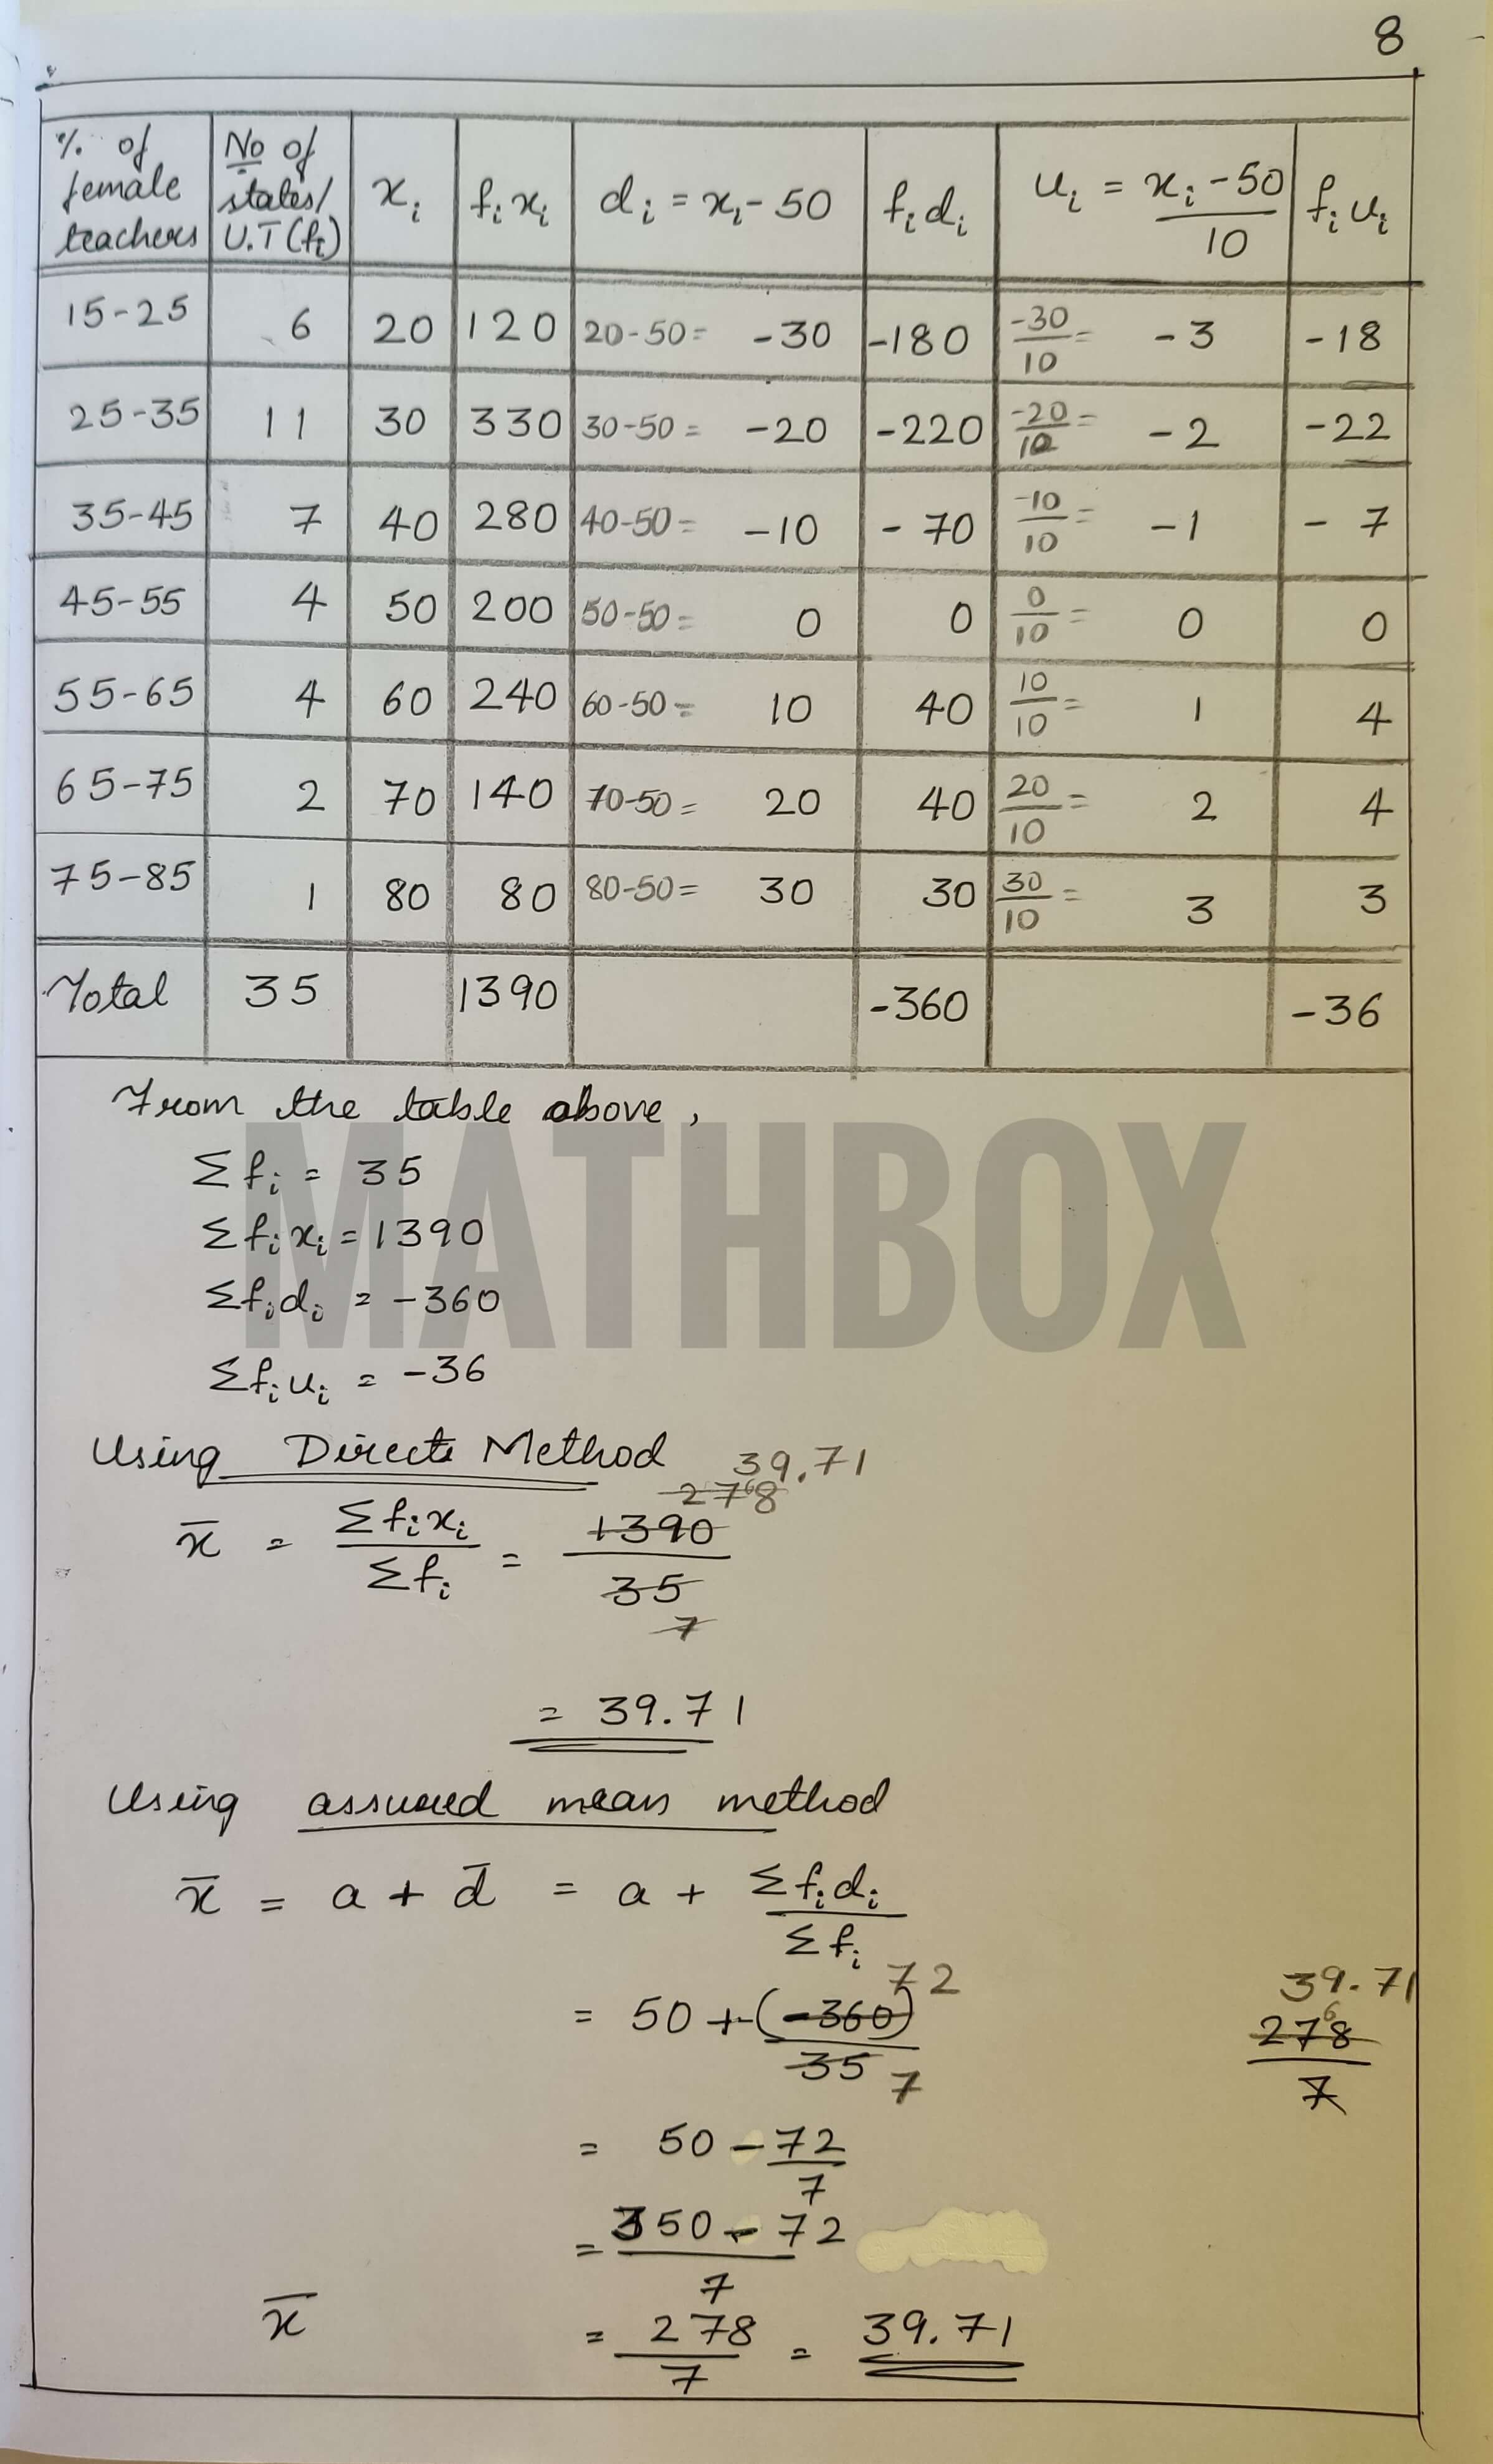 8
% of female teachers | No of states/ U.T (fi) | xi | fixi | di = xi - 50 | fidi | ui = xi - 50 / 10 | fiui
15-25 | 6 | 20 | 120 | 20-50 = -30 | -180 | -30/10 = -3 | -18
25-35 | 11 | 30 | 330 | 30-50 = -20 | -220 | -20/10 = -2 | -22
35-45 | 7 | 40 | 280 | 40-50 = -10 | - 70 | -10/10 = -1 | - 7
45-55 | 4 | 50 | 200 | 50-50 = 0 | 0 | 0/10 = 0 | 0
55-65 | 4 | 60 | 240 | 60-50 = 10 | 40 | 10/10 = 1 | 4
65-75 | 2 | 70 | 140 | 70-50 = 20 | 40 | 20/10 = 2 | 4
75-85 | 1 | 80 | 80 | 80-50 = 30 | 30 | 30/10 = 3 | 3
Total | 35 | 1390 | -360 | -36
From the table above,
MATHBOX
Σfi = 35
Σfixi = 1390
Σfidi = -360
Σfiui = -36
Using Direct Method
39.71
27⁶8
x̄ = Σfixi / Σfi = 1390 / 35
7
= 39.71
Using assumed mean method
x̄ = a + d̄ = a + Σfidi / Σfi
72
= 50 + (-360) / 35
7
39.71
27⁶8 / 7
= 50 - 72 / 7
= 350 - 72 / 7
x̄ = 278 / 7 = 39.71